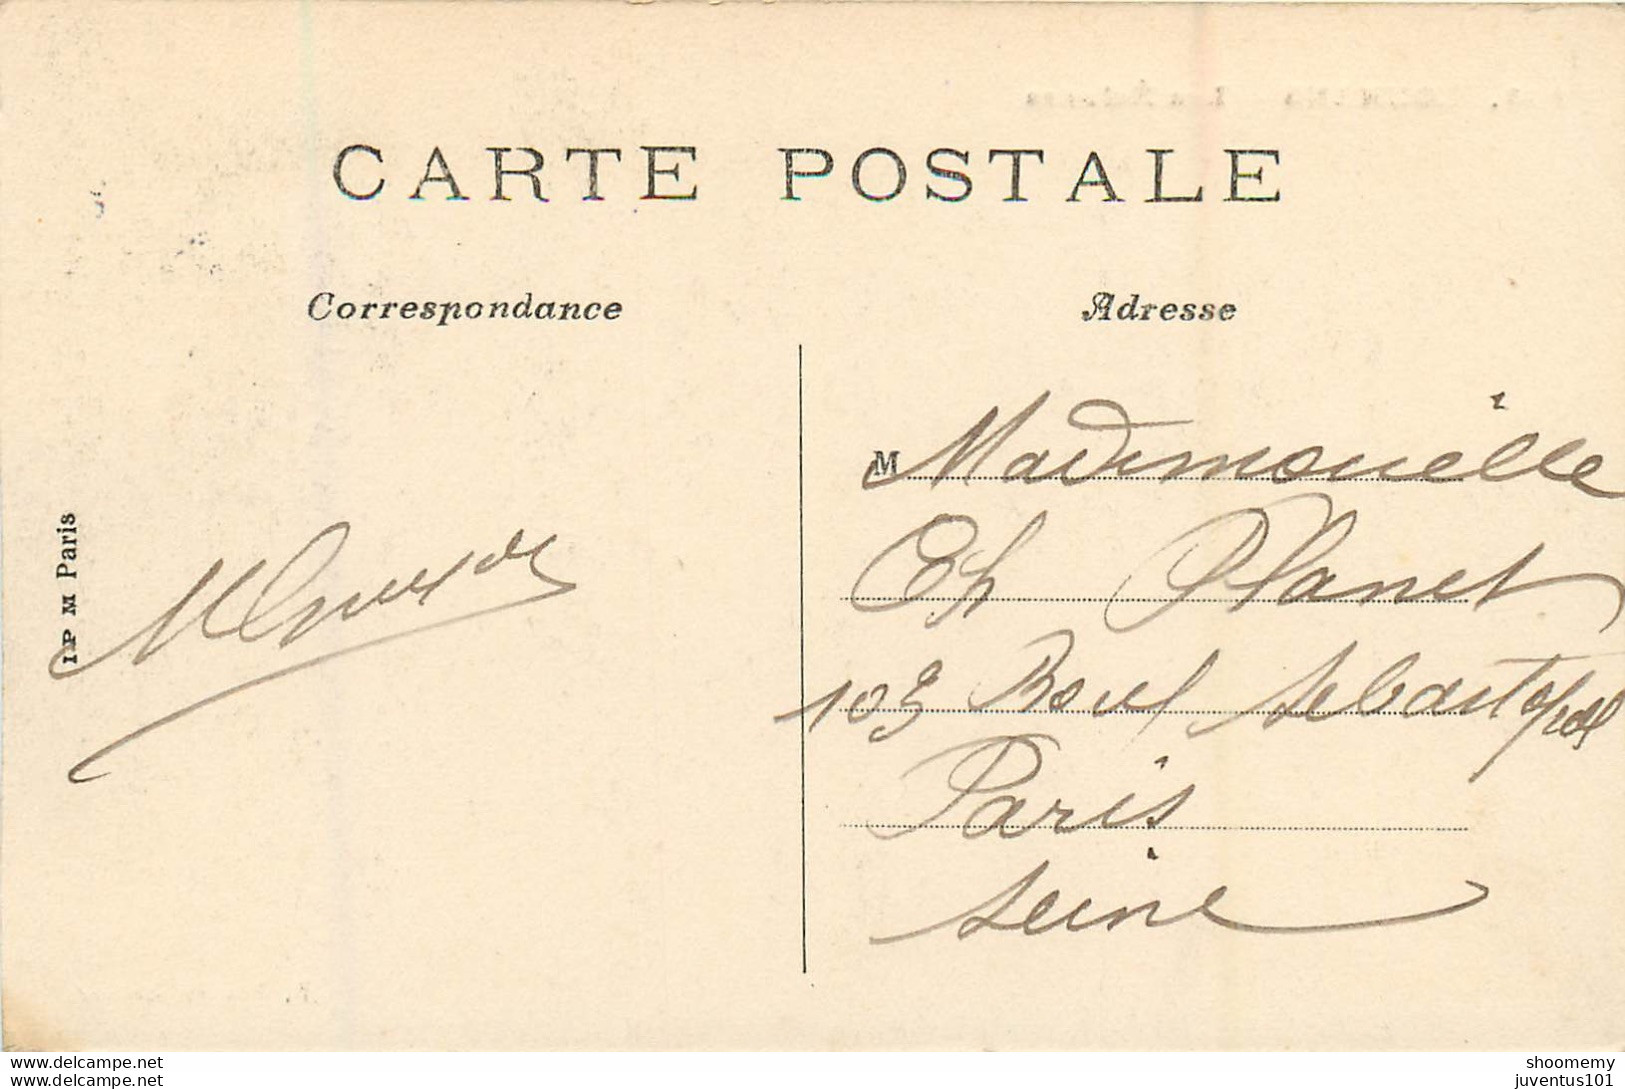 CARTE POSTALE
Correspondance
Adresse
IP M Paris
M Mademoiselle
Ch Planet
103 Boul Sebastopol
Paris
Seine
www.delcampe.net
www.delcampe.net
shoomemy
juventus101